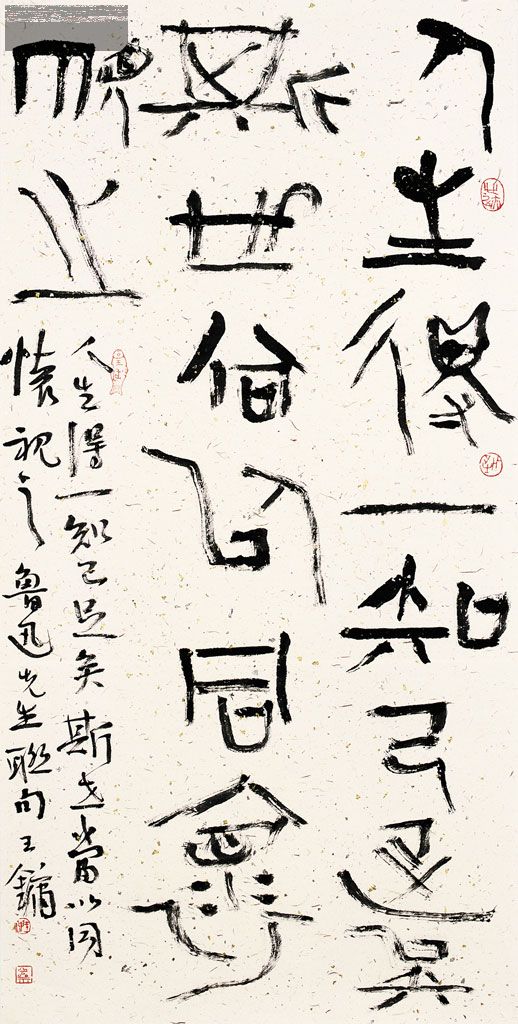 人生得一知己足矣
斯世當以同懷
視之
人生得一知己足矣斯世當以同
懷視之魯迅先生聯句王鏞